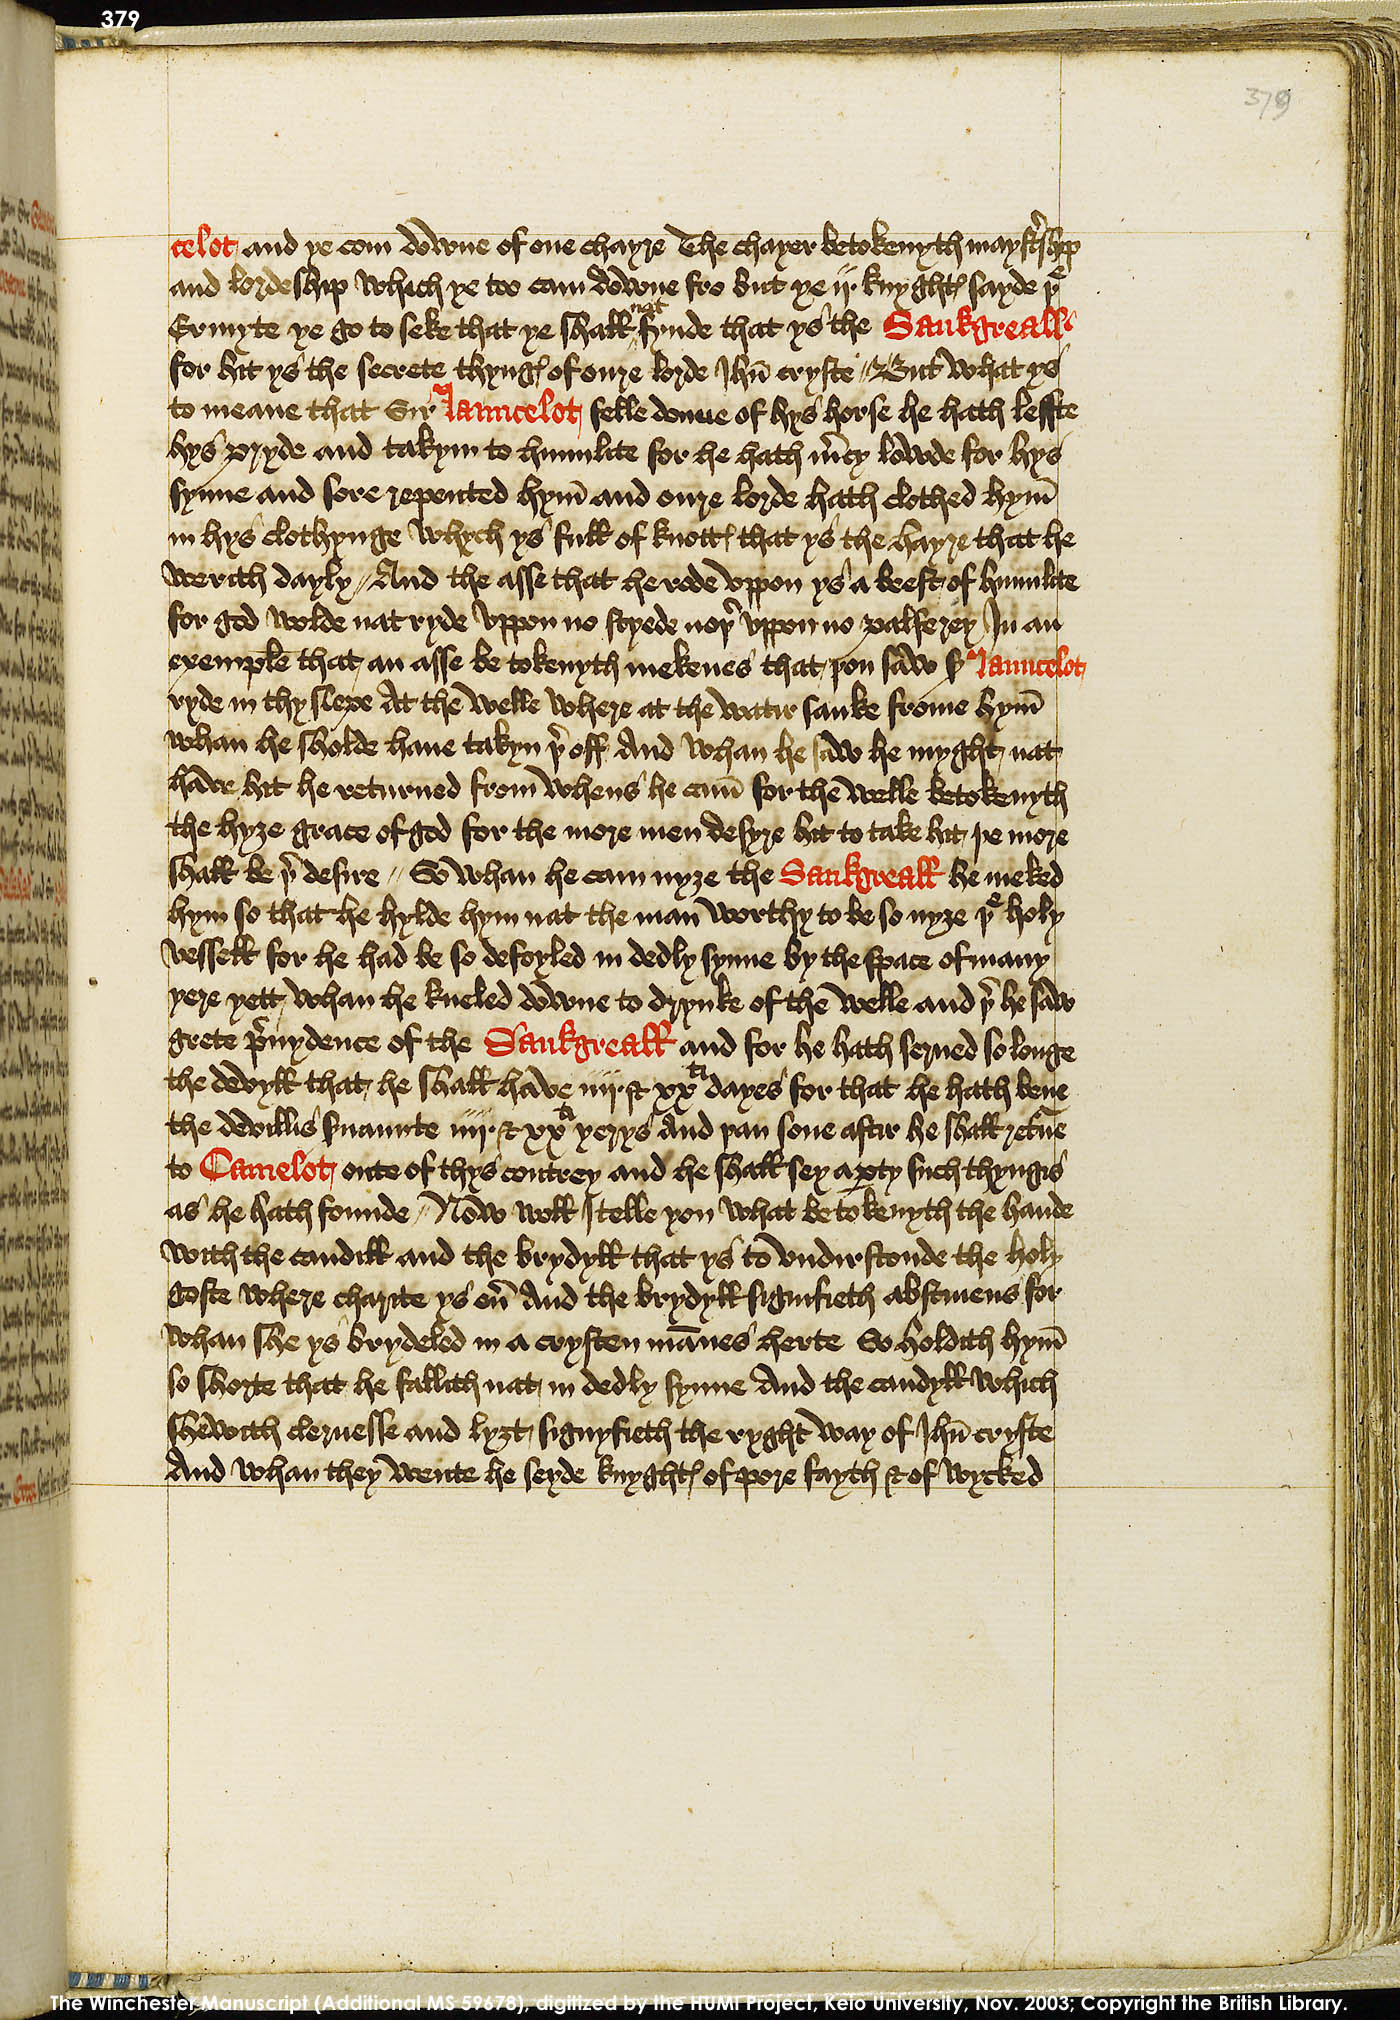 379
379
celot and ye com downe of one chayre The chayer betokenyth maystirshyp
and lordeship which ye too cam downe fro but ye ij knyghtes sayde þe
Ermyte ye go to seke that ye shall nat fynde that ys the Sankgreall
for hit ys the secrete thynges of oure lorde Jhu cryste // But what ys
to meane that Sir Launcelot felle doune of hys horse he hath leffte
hys pryde and takyn to humilite for he hath mercy lowde for hys
synne and sore repented hym and oure lorde hath clothed hym
in hys clothynge whych ys full of knottes that ys the hayre that he
werith dayly // And the asse that he rode uppon ys a beest of humilite
for god wolde nat ryde uppon no styede nor uppon no palferey In an
exemple that an asse betokenyth mekenes that þou saw Sir Launcelot
ryde in thy slepe At the welle whereat the watir sanke frome hym
whan he sholde haue takyn þeroff And whan he saw he myght nat
have hit he returned from whens he cam for the welle betokenyth
the hyȝe grace of god for the more men desyre hit to take hit þe more
shall be þer desire // So whan he cam nyȝe the Sankgreall he meked
hym so that he hylde hym nat the man worthy to be so nyȝe þe holy
vessell for he had be so defoyled in dedly synne by the space of many
yere yett whan he kneled downe to drynke of the welle and þer he saw
grete prouydence of the Sankgreall and for he hath serued so longe
the devyll that he shall have iiij & xxti dayes for that he hath bene
the devillis seruaunte iiij & xxti yerys And þan sone aftir he shall returne
to Camelot oute of thys contrey and he shall sey a party such thyngis
as he hath founde // Now woll I telle you what betokenyth the hande
with the candill and the brydyll that ys to undirstonde the holy
goste where charite ys euer And the brydyll signifieth abstinens for
whan she ys brydeled in a crysten mannes herte So holdith hym
so shorte that he fallith nat in dedly synne And the candyll which
shewith clernesse and lyȝt signyfieth the ryght way of Jhu cryste
And whan they wente he seyde knyghtes of pore fayth & of wycked
The Winchester Manuscript (Additional MS 59678), digitized by the HUMI Project, Keio University, Nov. 2003; Copyright the British Library.